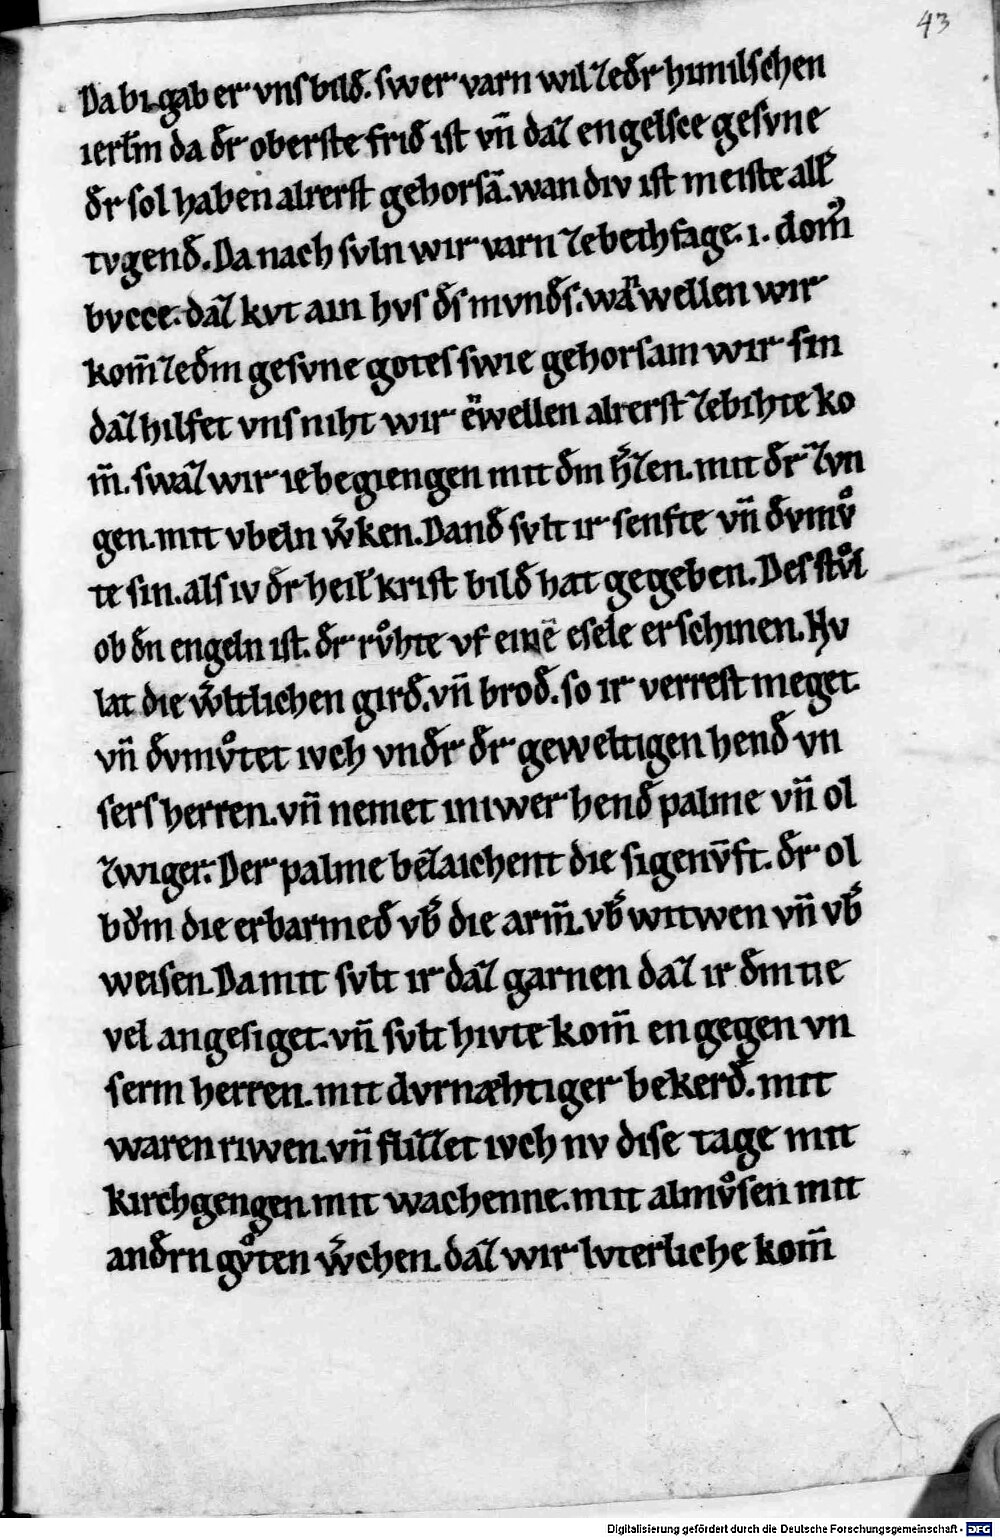 43
Da bi gab er vns bild̄. swer varn wil zed̄r himilschen
ierl̄m da d̄r oberste frid̄ ist vn̄ daz engelsce gesvne
d̄r sol haben alrerst gehorsā. wan div ist meiste all̄
tvgend̄. Da nach svln wir varn zebethfage. i. dom᷒
bvcce. daz kvt ain hvs d̄s mvnd̄s. wār wellen wir
kom̄ zed̄m gesvne gotes swie gehorsam wir sin
daz hilfet vns niht wir ēwellen alrerst zebihte ko
m̄. swaz wir ie begiengen mit d̄m h̄zen. mit d̄r zvn
gen. mit vbeln w̄ken. Dand̄ svlt ir senfte vn̄ d̄vmvͦ
te sin. als iv d̄r heil̄ krist bild̄ hat gegeben. Des stvͦl
ob d̄n engeln ist. d̄r rvͦhte vf einē esele erschinen. Nv
lat die w̄ltlichen gird̄. vn̄ brod̄. so ir verrest meget
vn̄ d̄vmvͦtet ivch vnd̄r d̄r geweltigen hend̄ vn
sers herren. vn̄ nemet in iwer hend̄ palme vn̄ ol
zwiger. Der palme bezaichent die sigenv̄ft. d̄r ol
bovm die erbarmed̄ vb̄ die arm̄. vb̄ witwen vn̄ vb̄
weisen. Da mit svlt ir daz garnen daz ir d̄m tie
vel angesiget. vn̄ svlt hivte kom̄ engegen vn
serm herren. mit dvrnæhtiger bekerd̄. mit
waren riwen. vn̄ flizzet ivch nv dise tage mit
kirchgengen mit wachenne. mit almvͦsen mit
and̄rn gvͦten w̄chen. daz wir lvterliche kom̄
Digitalisierung gefördert durch die Deutsche Forschungsgemeinschaft - DFG